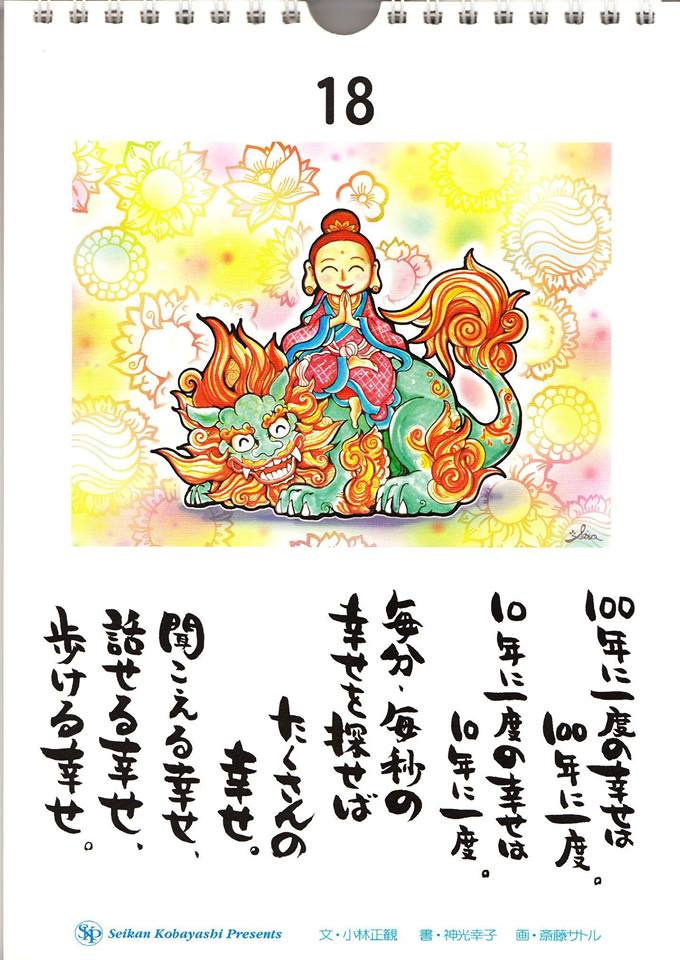 18
100年に一度の幸せは
100年に一度。
10年に一度の幸せは
10年に一度。
毎分、毎秒の
幸せを探せば
たくさんの
幸せ。
聞こえる幸せ、
話せる幸せ、
歩ける幸せ。
SKP
Seikan Kobayashi Presents
文・小林正観 書・神光幸子 画・斎藤サトル